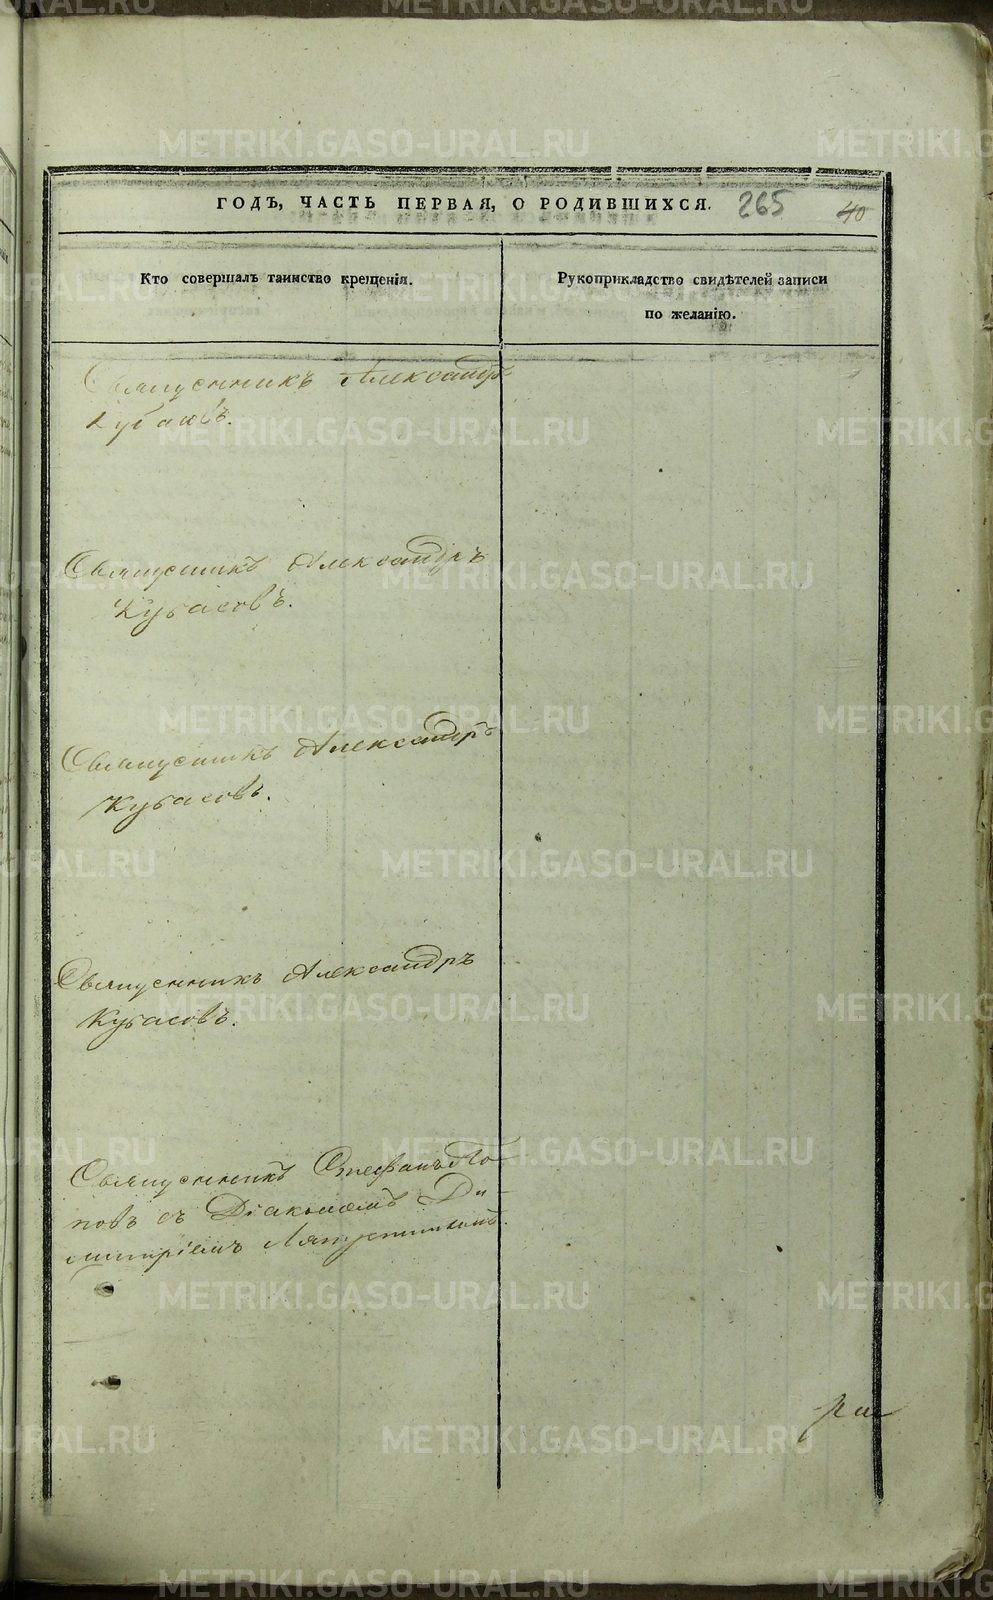 ГОДЪ, ЧАСТЬ ПЕРВАЯ, О РОДИВШИХСЯ. 265 40
Кто совершалъ таинство крещенія.
Рукоприкладство свидѣтелей записи
по желанію.
Священникъ Александръ
Кубасовъ.
Священникъ Александръ
Кубасовъ.
Священникъ Александръ
Кубасовъ.
Священникъ Александръ
Кубасовъ.
Священникъ Стефанъ По-
повъ съ Діакономъ Ди-
митріемъ
METRIKI.GASO-URAL.RU